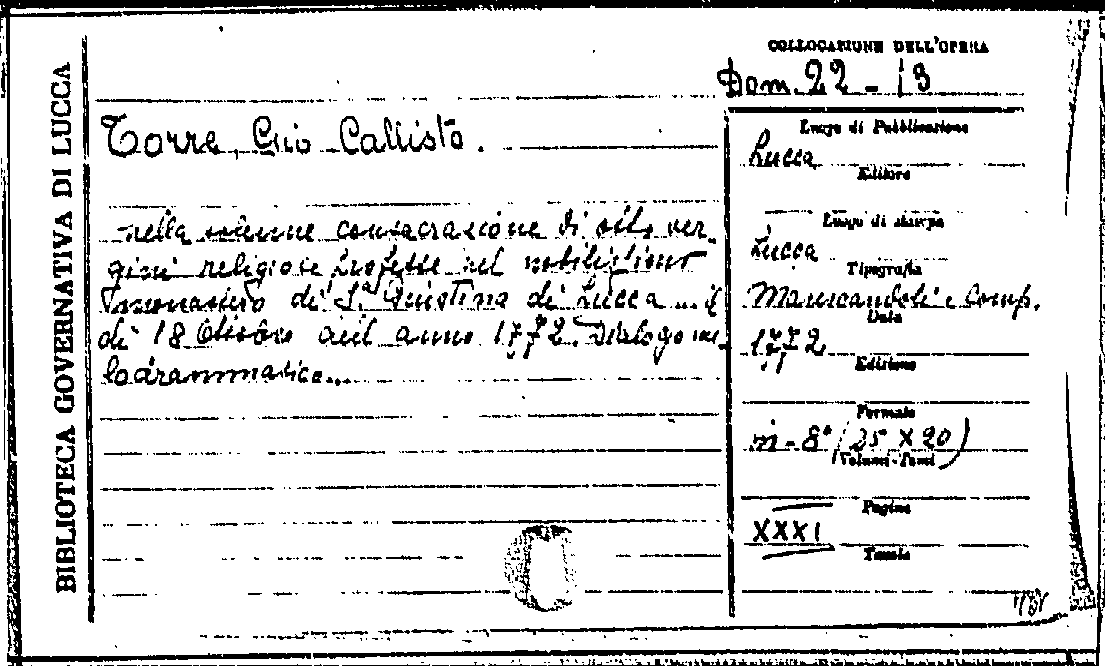 BIBLIOTECA GOVERNATIVA DI LUCCA
COLLOCAZIONE DELL'OPERA
Dom. 22 - 13
Torre, Gio Callisto.
nella solenne consacrazione di otto ver-
gini religiose professe nel nobilissimo
monastero di S.ª Giustina di Lucca ... il
dì 18 Ottobre dell'anno 1772. Dialogo me-
lodrammatico...
Luogo di Pubblicazione
Lucca
Editore
Luogo di stampa
Lucca
Tipografia
Marescandoli e Comp.
Data
1772
Edizione
Formato
in-8° (25 X 20)
Volumi-Tomi
Pagine
XXXI
Tavole